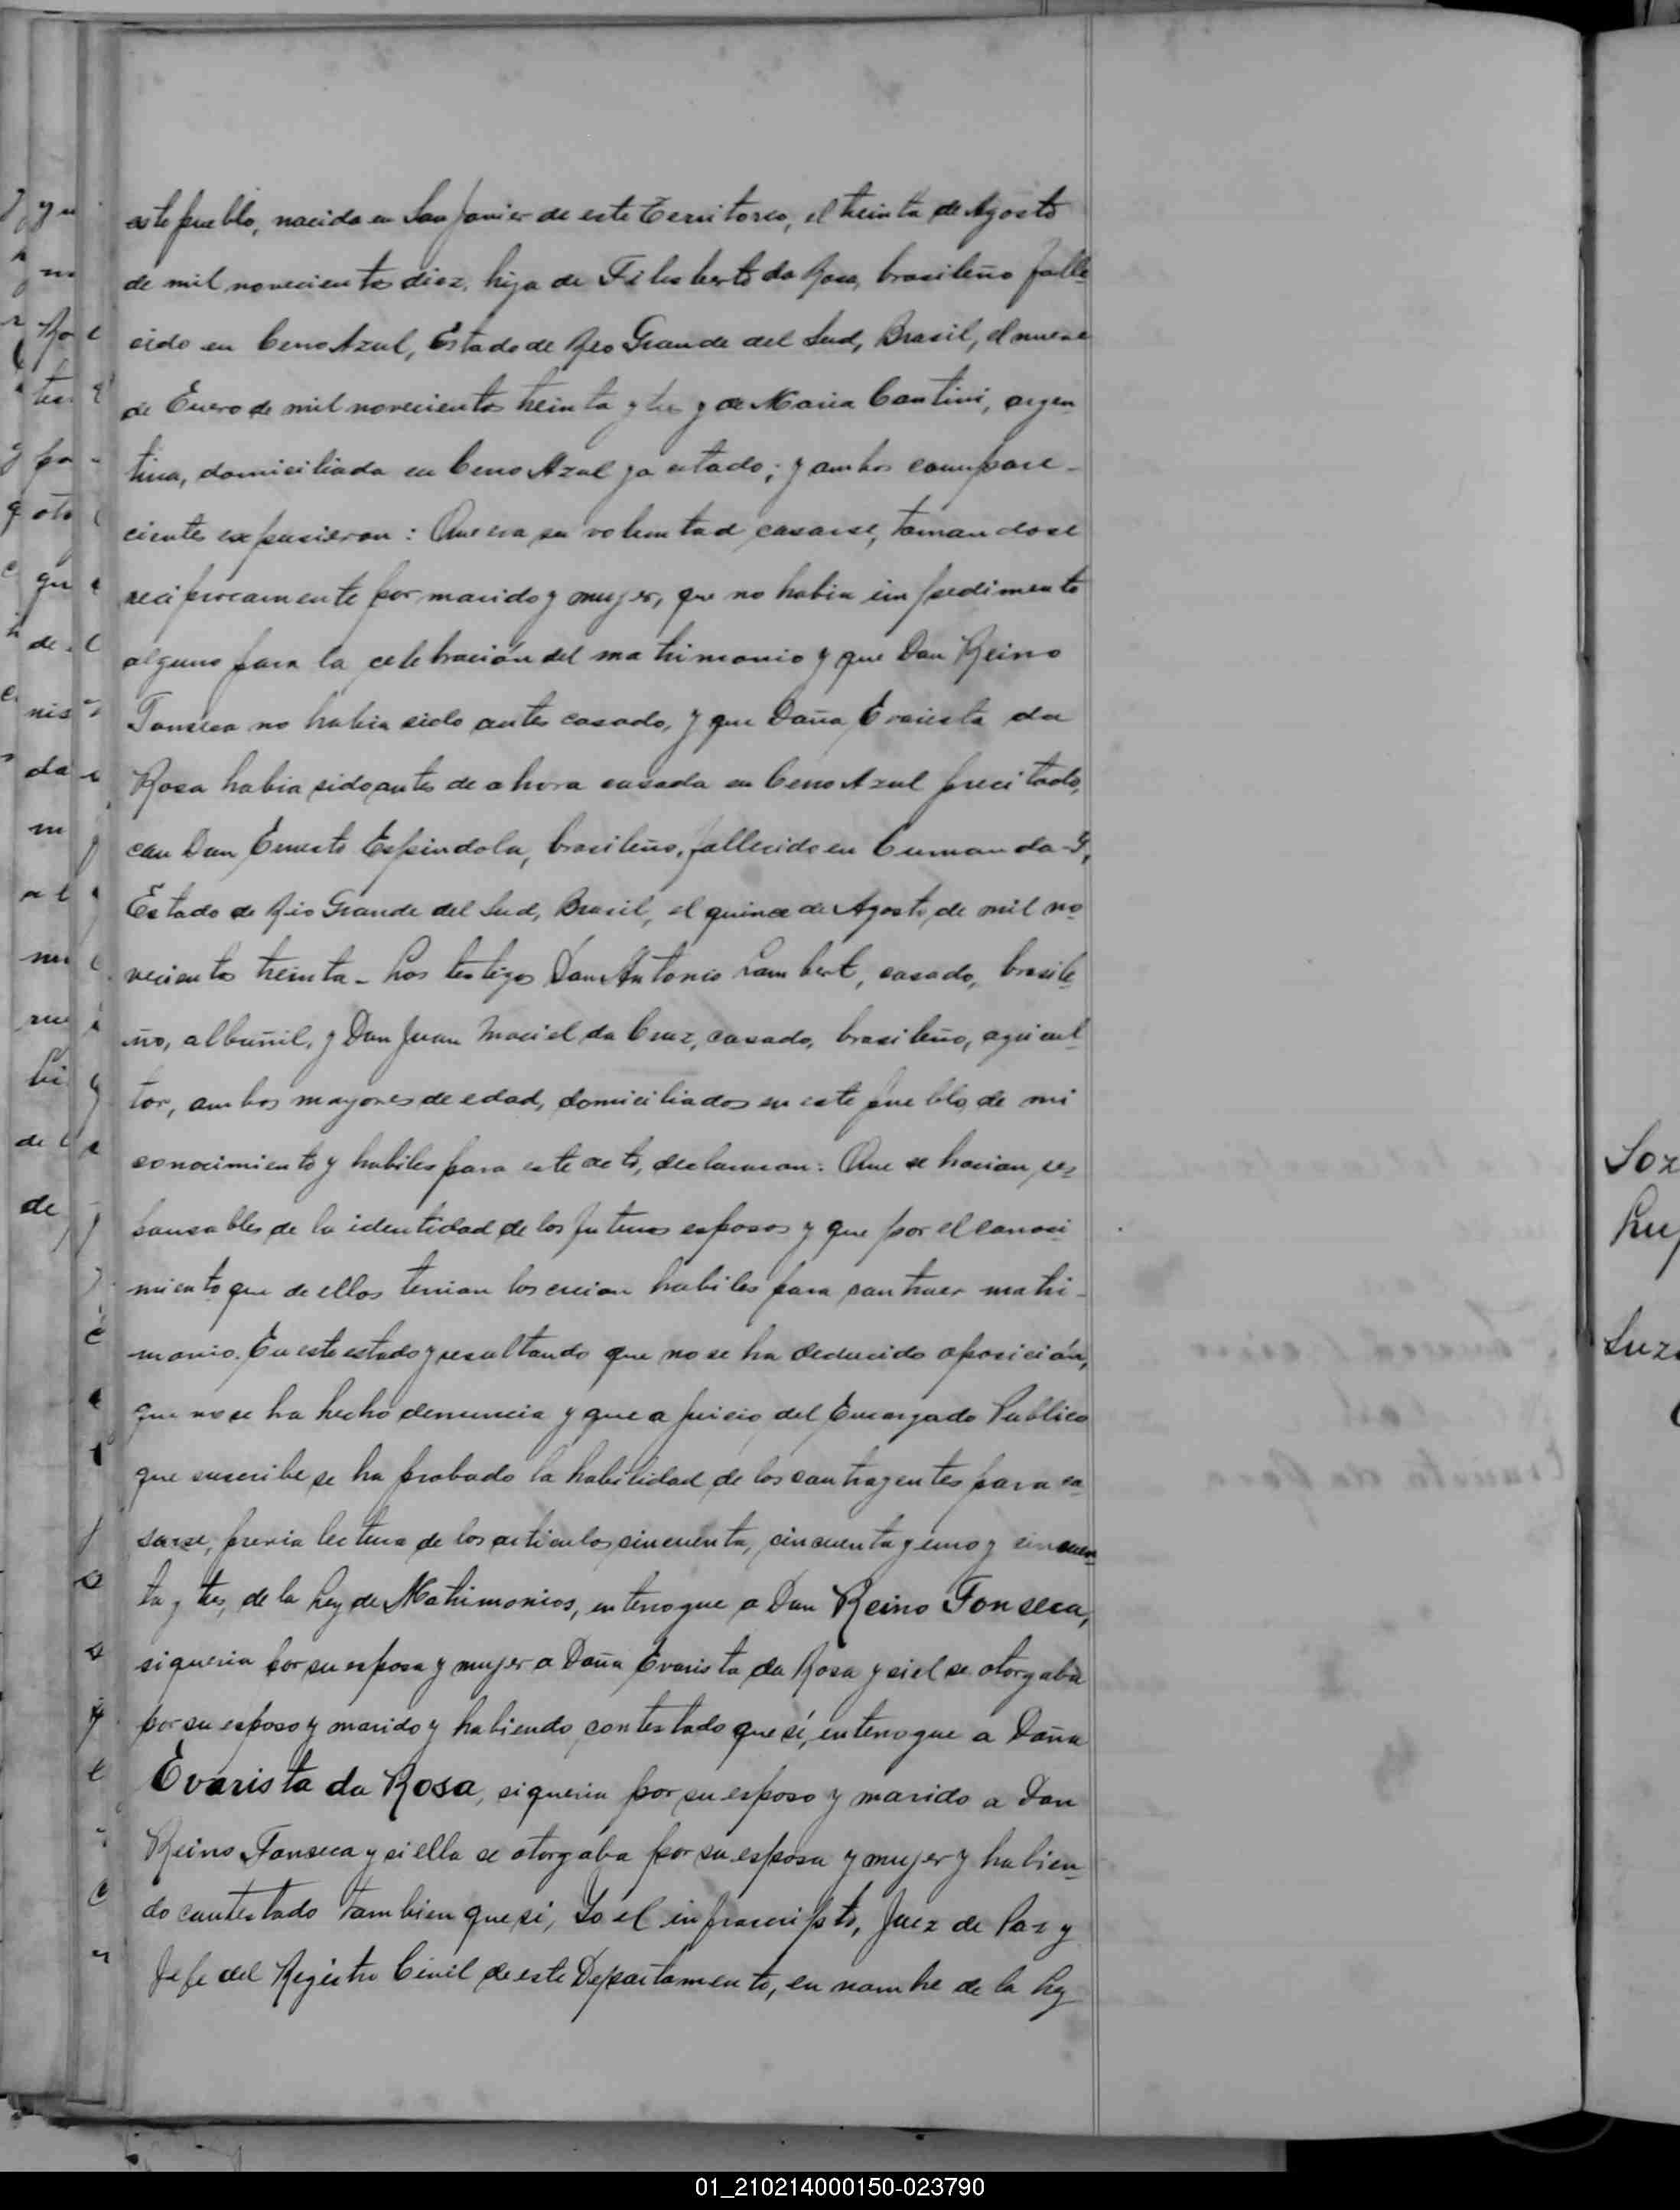 este pueblo, nacida en San Javier de este Territorio, el treinta de Agosto
de mil novecientos diez, hija de Filisberto da Rosa, brasileño falle
cido en Cerro Azul, Estado de Rio Grande del Sud, Brasil, el nueve
de Enero de mil novecientos treinta y tres y de Maria Cantini, argen
tina, domiciliada en Cerro Azul ya citado; y ambos compare-
cientes expusieron: Que era su voluntad casarse, tomandose
reciprocamente por marido y mujer, que no habia impedimento
alguno para la celebración del matrimonio y que Don Reino
Fonseca no habia sido antes casado, y que Doña Evarista da
Rosa habia sido antes de ahora casada en Cerro Azul precitado,
con Don Ernesto Espindola, brasileño, fallecido en
Estado de Rio Grande del Sud, Brasil, el quince de Agosto de mil no
vecientos treinta - Los testigos Don Antonio Lambert, casado, brasile
ño, albañil, y Don Juan Maciel da Cruz, casado, brasileño, agricul
tor, ambos mayores de edad, domiciliados en este pueblo, de mi
conocimiento y habiles para este acto, declararon: Que se hacian res
ponsables de la identidad de los futuros esposos y que por el conoci
miento que de ellos tenian los creian habiles para contraer matri-
monio. En este estado y resultando que no se ha deducido oposición,
que no se ha hecho denuncia y que a juicio del Encargado Publico
que suscribe se ha probado la habilidad de los contrayentes para ca
sarse, previa lectura de los articulos cincuenta, cincuenta y uno y cincuen
ta y tres, de la Ley de Matrimonios, interrogue a Don Reino Fonseca,
si queria por su esposa y mujer a Doña Evarista da Rosa y si el se otorgaba
por su esposo y marido y habiendo contestado que sí, interrogue a Doña
Evarista da Rosa, si queria por su esposo y marido a Don
Reino Fonseca y si ella se otorgaba por su esposa y mujer y habien
do contestado tambien que si, Yo el infrascripto, Juez de Paz y
Jefe del Registro Civil de este Departamento, en nombre de la Ley
01_210214000150-023790